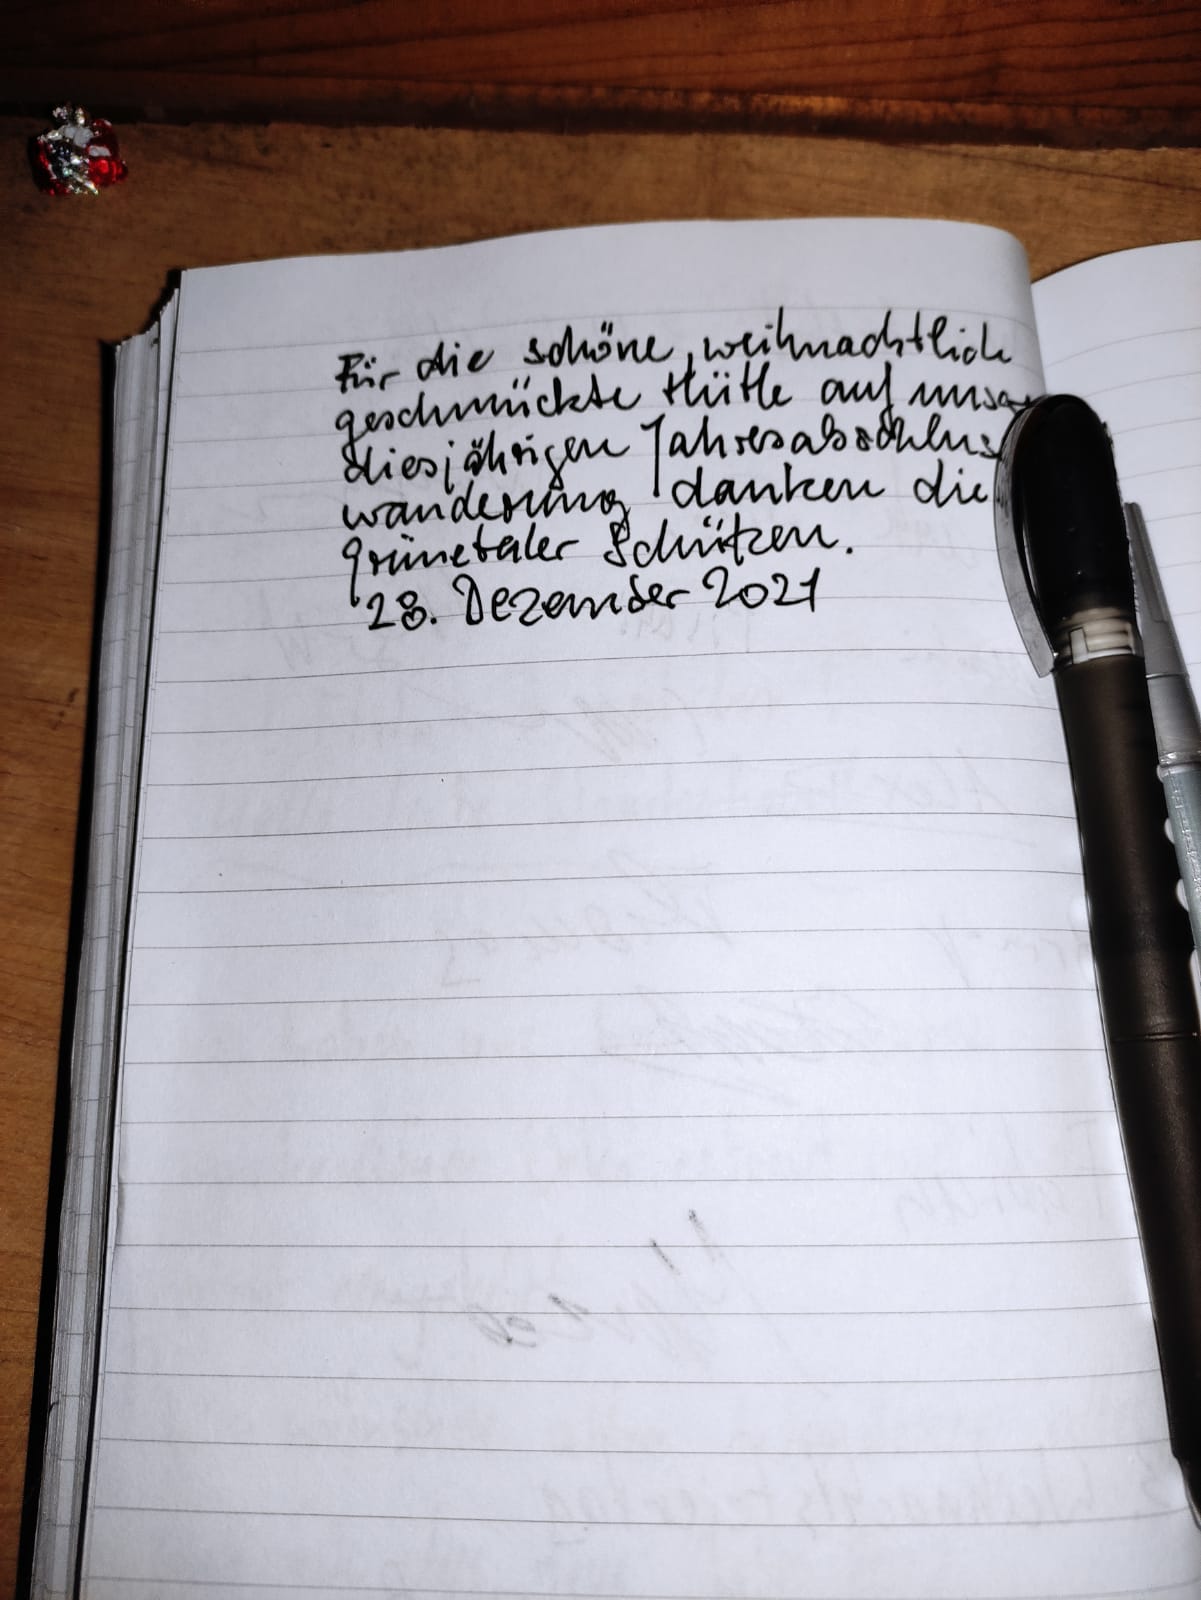 Für die schöne, weihnachtlich
geschmückte Hütte auf unser
diesjährigen Jahresabschluss
wanderung danken die
Grünetaler Schützen.
28. Dezember 2021